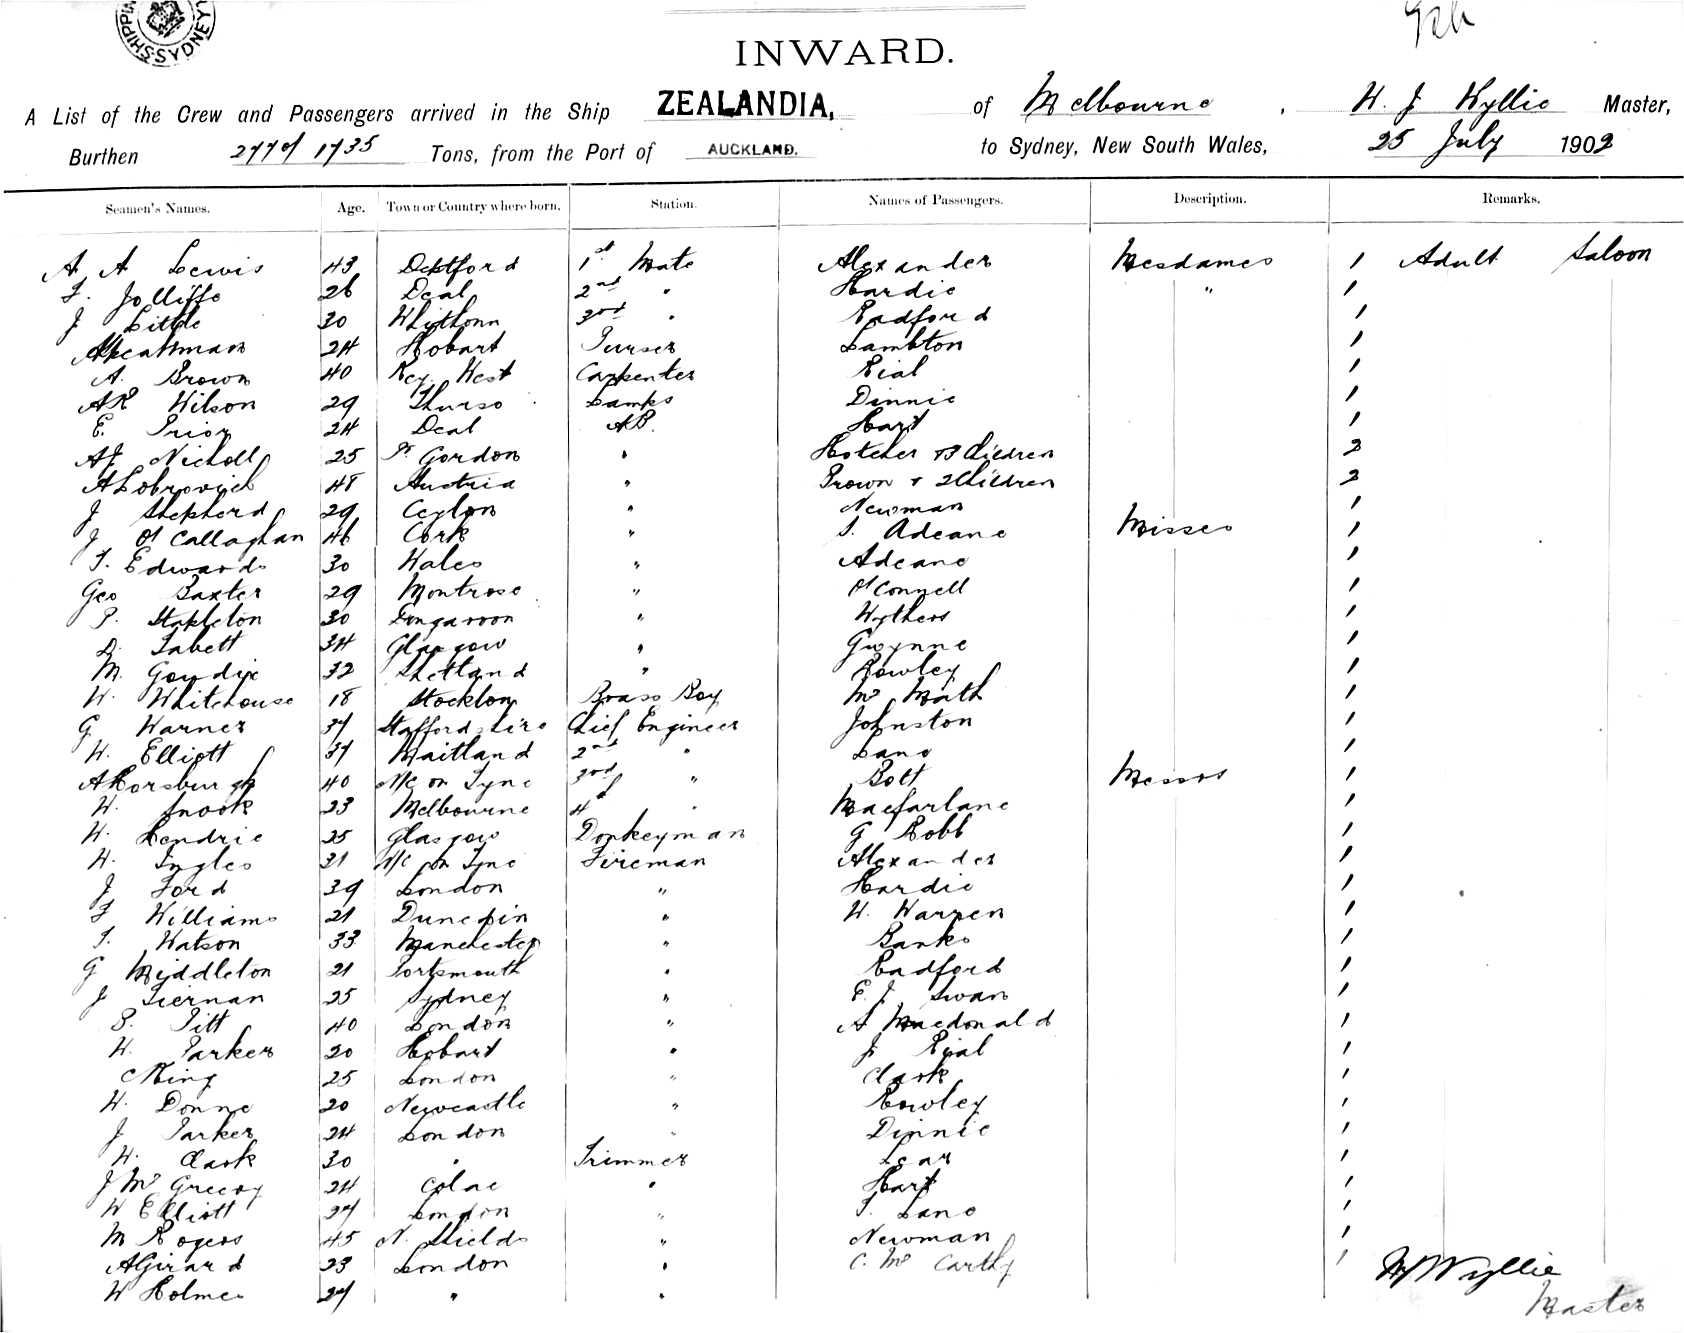 SHIPPIN
SYDNEY
INWARD.
A List of the Crew and Passengers arrived in the Ship ZEALANDIA, of Melbourne, W. J Wyllie Master,
Burthen 2771 1735 Tons, from the Port of AUCKLAND. to Sydney, New South Wales, 25 July 1902
Seamen's Names. Age. Town or Country where born. Station. Names of Passengers. Description. Remarks.
A A Lewis 43 Deptford 1st Mate Alexander Mesdames 1 Adult Saloon
F. Jolliffe 26 Deal 2nd " Hardie " 1
J Little 30 Whithorn 3rd " Radford 1
24 Hobart Purser Lambton 1
A. Brown 40 Key West Carpenter Rial 1
AR Wilson 29 Thurso Lamps Dinnie 1
E. Prior 24 Deal AB. Hart 1
AJ Nicholl 25 Pt Gordon " Hotcher & 3 Children 2
48 Austria " Brown & 2 Children 2
J Shepherd 29 Ceylon " Newman 1
J O'Callaghan 46 Cork " S. Adeane Misses 1
T. Edwards 30 Wales " Adeane 1
Geo Baxter 29 Montrose " O'Connell 1
P. Stapleton 30 " Wythers 1
D. Tabett 34 Glasgow " Gwynne 1
M. Goudie 32 Shetland " Rowley 1
W. Whitehouse 18 Stockton Brass Boy McMath 1
G Warner 37 Staffordshire Chief Engineer Johnston 1
W. Elliott 37 Maitland 2nd " Lane 1
A Horsburgh 40 N/C on Tyne 3rd " Bolt Messrs 1
W. Snook 23 Melbourne 4th " Macfarlane 1
W. Hendrie 25 Glasgow Donkeyman G Robb 1
W. Ingles 31 N/C on Tyne Fireman Alexander 1
J Ford 39 London " Hardie 1
F Williams 21 Dunedin " W. Warren 1
T. Watson 33 Manchester " Banks 1
G Middleton 21 Portsmouth " Radford 1
J Tiernan 25 Sydney " E. J. Swan 1
S. Pitt 40 London " A Macdonald 1
W. Parker 20 Hobart " J Rial 1
C King 25 London " Clark 1
W. Donne 20 Newcastle " Rowley 1
J Parker 24 London " Dinnie 1
W. Clark 30 " Trimmer Lear 1
J McGregor 24 Colac " Hart 1
W Elliott 27 London " T. Lane 1
M Rogers 45 N. Shields " Newman 1
A Girard 23 London " C. McCarthy 1
W Holmes 27 " "
WJ Wyllie
Master